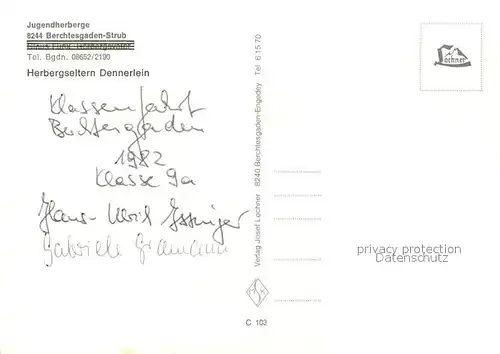 Jugendherberge
8244 Berchtesgaden-Strub
Tel. Bgdn. 08652/2190
Herbergseltern Dennerlein
Klassenfahrt
Berchtesgaden
1982
Klasse 9a
Hans-Ulrich Essinger
Gabriele Gramann
Verlag Josef Lochner 8240 Berchtesgaden-Engedey Tel 6 15 70
Lochner
privacy protection
Datenschutz
C 103